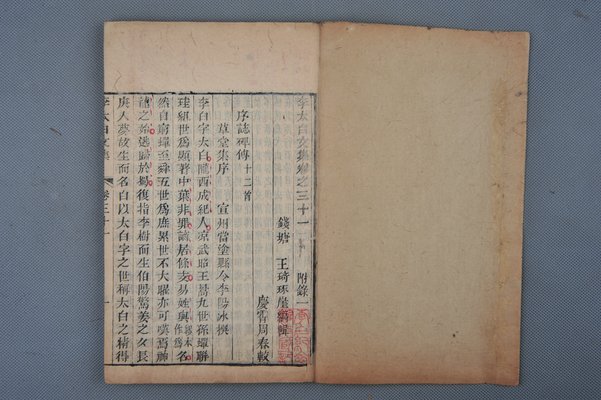 李太白文集卷之三十一 附錄一
錢塘 王琦琢崖編輯
慶霄周春較
序誌碑傳十二首
草堂集序 宣州當塗縣令李陽冰撰
李白字太白隴西成紀人涼武昭王暠九世孫蟬聯
珪組世爲顯著中葉非罪謫居條支易姓與名
然自窮蟬至舜五世爲庶累世不大曜亦可歎焉神
龍之始逃歸於蜀復指李樹而生伯陽驚姜之夕長
庚入夢故生而名白以太白字之世稱太白之精得
李太白文集 卷三十一 一